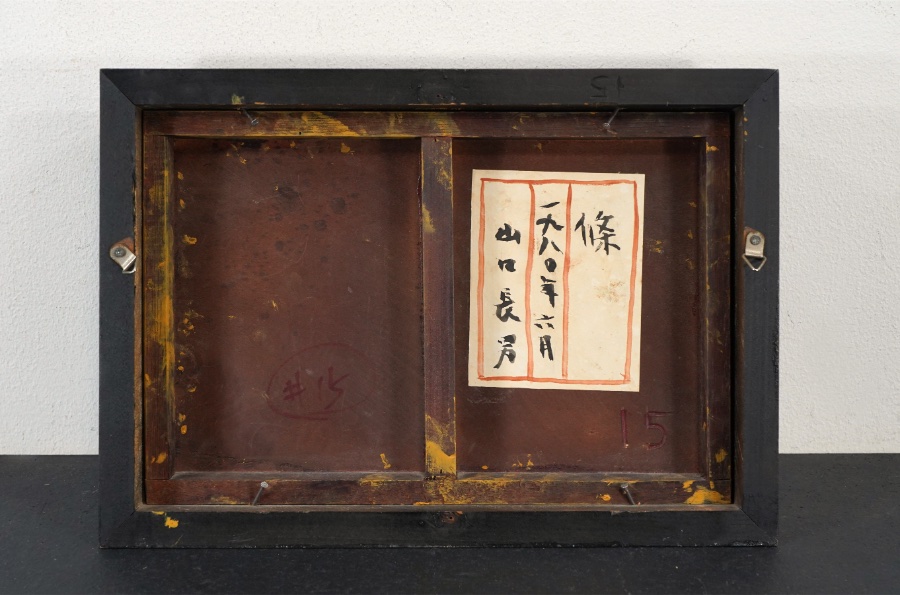 15
條
一九八〇年六月
山口長男
#15
15